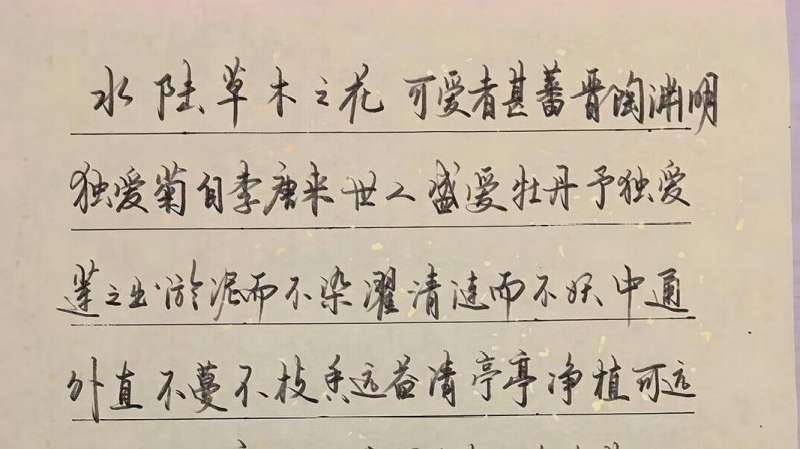 水陆草木之花可爱者甚蕃晋陶渊明
独爱菊自李唐来世人盛爱牡丹予独爱
莲之出淤泥而不染濯清涟而不妖中通
外直不蔓不枝香远益清亭亭净植可远